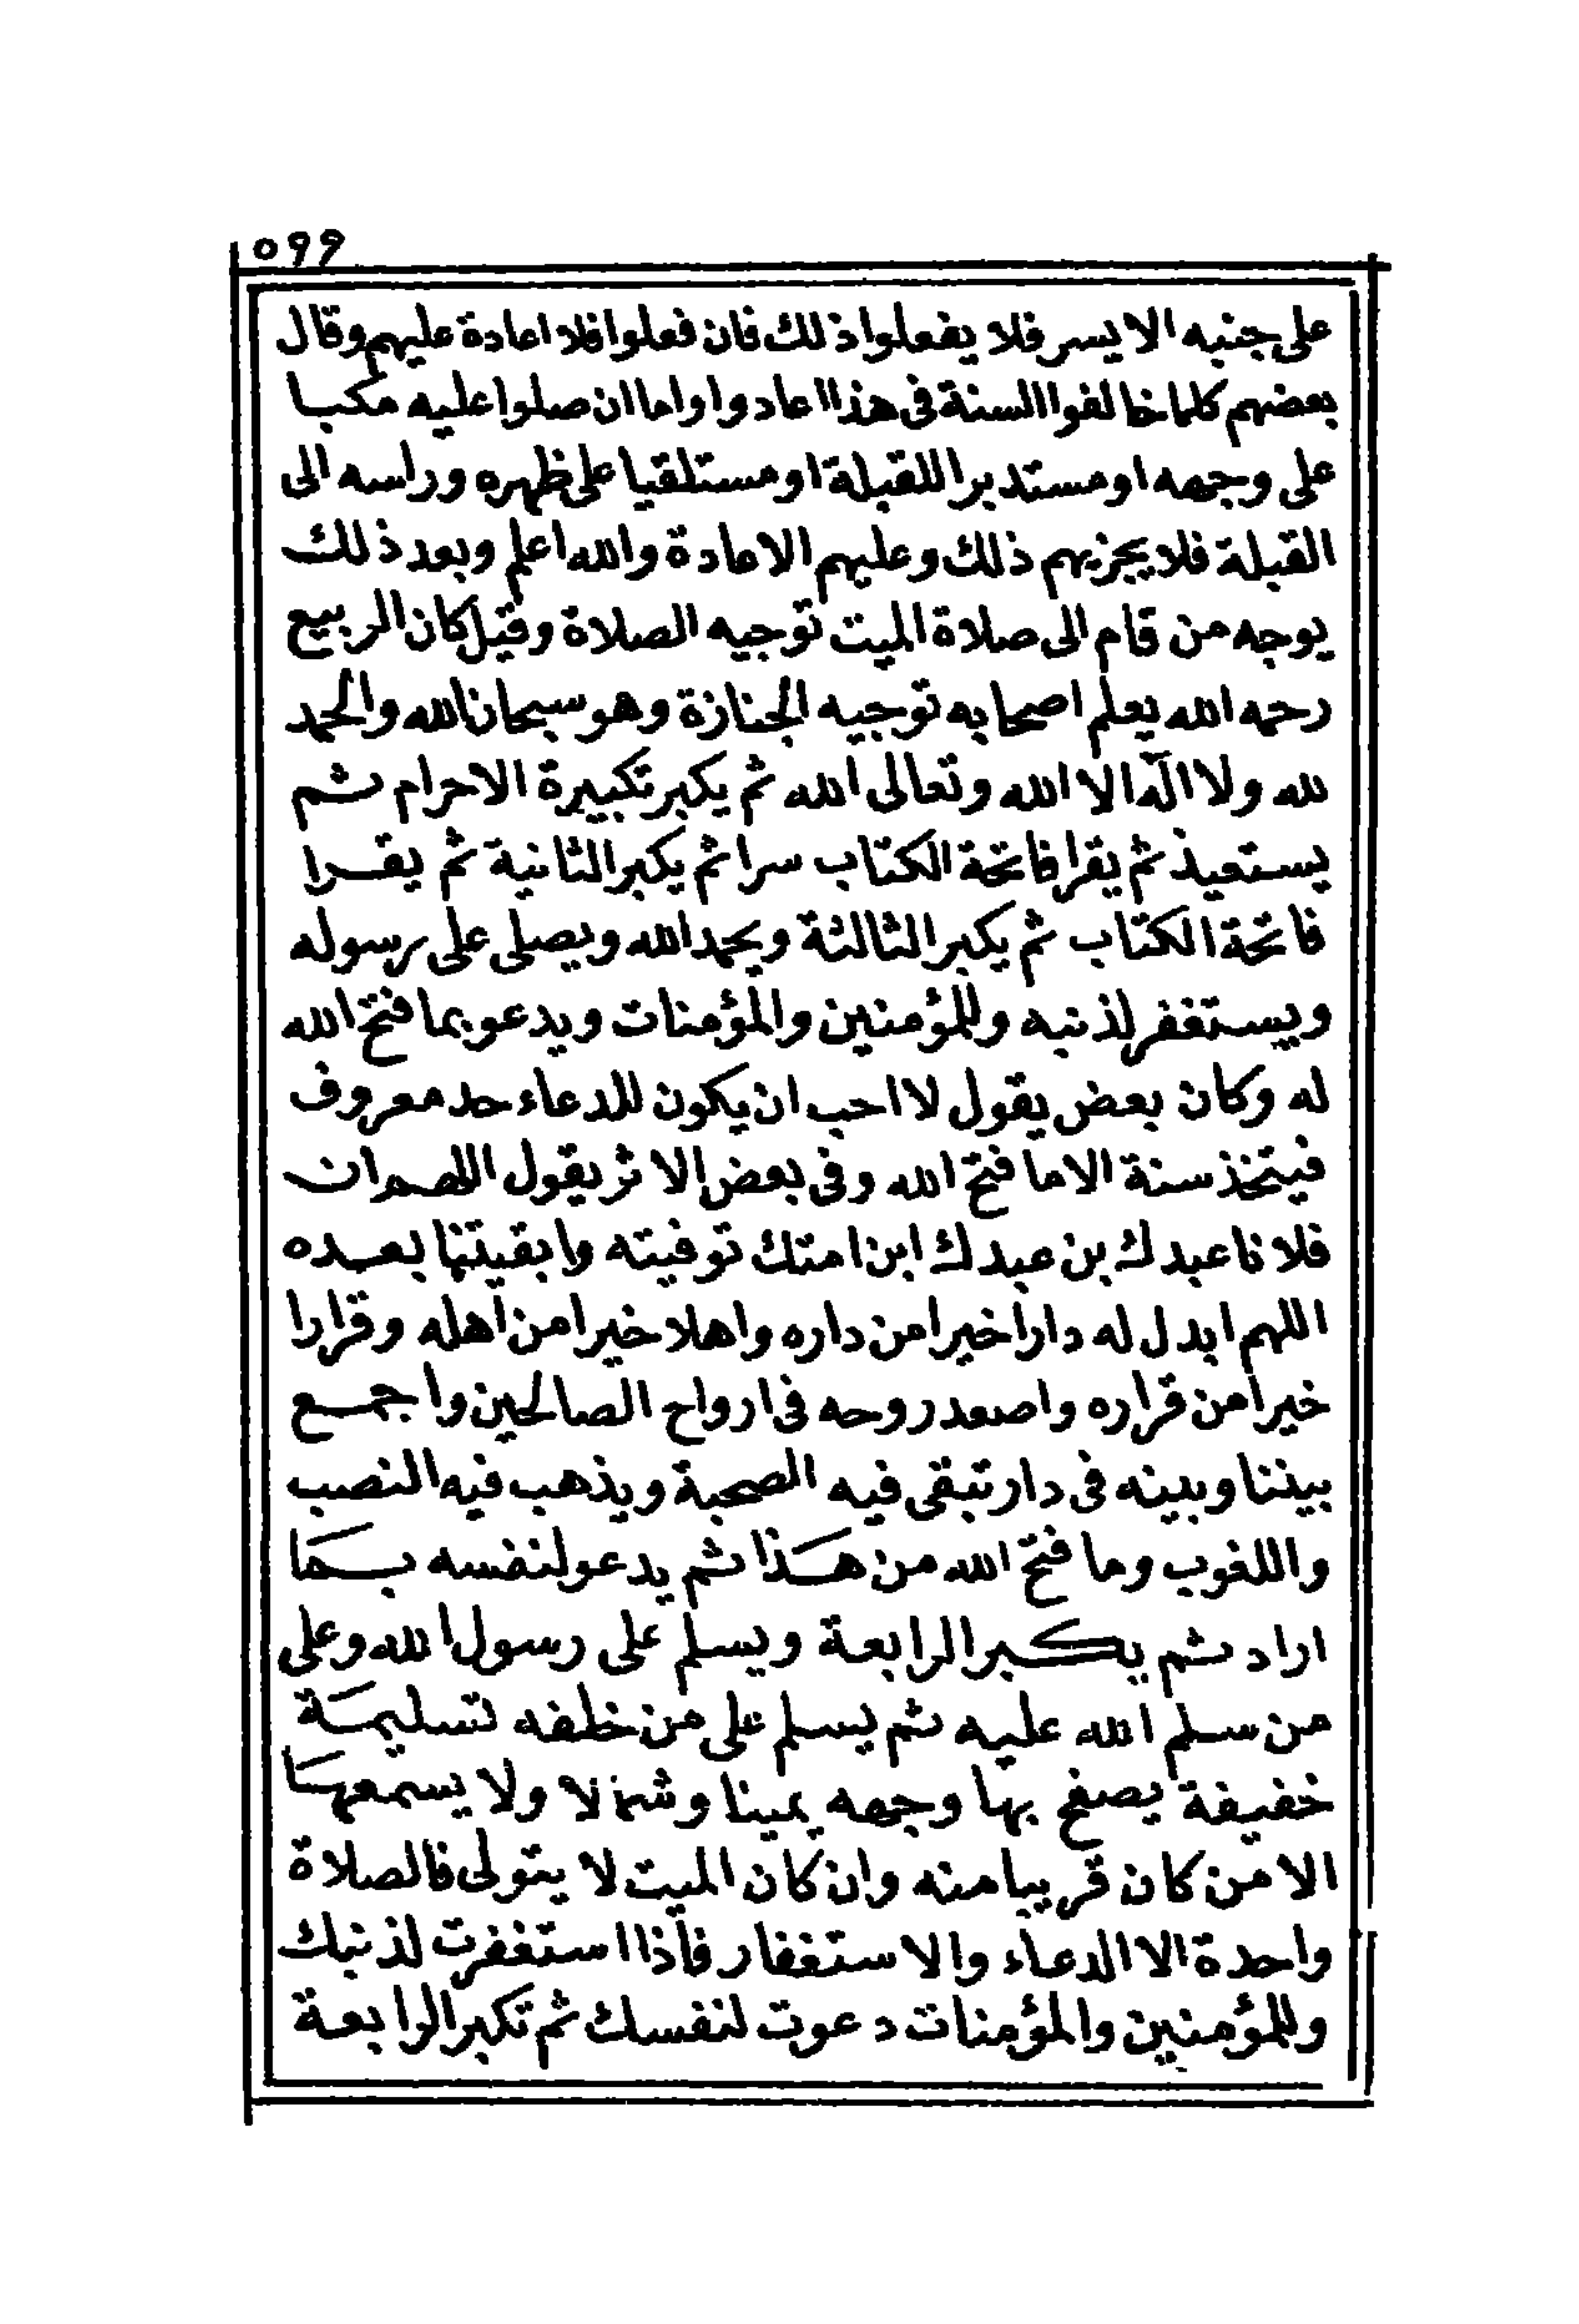 ٥٩٩
على جنبه الايسر فلا يفعلوا ذلك فان فعلوا فلا اعادة عليهم وقال
بعضهم كلما خالفوا السنة فى هذا اعادوا واما ان صلوا عليه مكبا
على وجهه او مستدبرا للقبلة او مستلقيا على ظهره وراسه الى
القبلة فلا يجزيهم ذلك وعليهم الاعادة والله اعلم وبعد ذلك
يوجه من قام الى صلاة الميت توجيه الصلاة وقيل كان الربيع
رحمه الله يعلم اصحابه توجيه الجنازة وهو سبحان الله والحمد
لله ولا اله الا الله وتعالى الله ثم يكبر تكبيرة الاحرام ثم
يستعيذ ثم يقرا فاتحة الكتاب سرا ثم يكبر الثانية ثم يقرا
فاتحة الكتاب ثم يكبر الثالثة ويحمد الله ويصلى على رسوله
ويستغفر لذنبه وللمؤمنين والمؤمنات ويدعو بما فتح الله
له وكان بعض يقول لا احب ان يكون للدعاء حد معروف
فيتخذ سنة الا ما فتح الله وفى بعض الاثر يقول اللهم ان
فلانا عبدك بن عبدك ابن امتك توفيته وابقيتنا بعده
اللهم ابدل له دارا خيرا من داره واهلا خيرا من اهله وقرارا
خيرا من قراره واصعد روحه فى ارواح الصالحين واجمع
بيننا وبينه فى دار تبقى فيه الصحبة ويذهب فيه النصب
واللغوب وما فتح الله من هذا ثم يدعو لنفسه بما
اراد ثم يكبر الرابعة ويسلم على رسول الله وعلى
من سلم الله عليه ثم يسلم على من خلفه تسليمة
خفيفة يصفح بها وجهه يمينا وشمالا ولا يسمعها
الا من كان قريبا منه وان كان الميت لا يتولى فالصلاة
واحدة الا الدعاء والاستغفار فاذا استغفرت لذنبك
وللمؤمنين والمؤمنات دعوت لنفسك ثم تكبر الرابعة